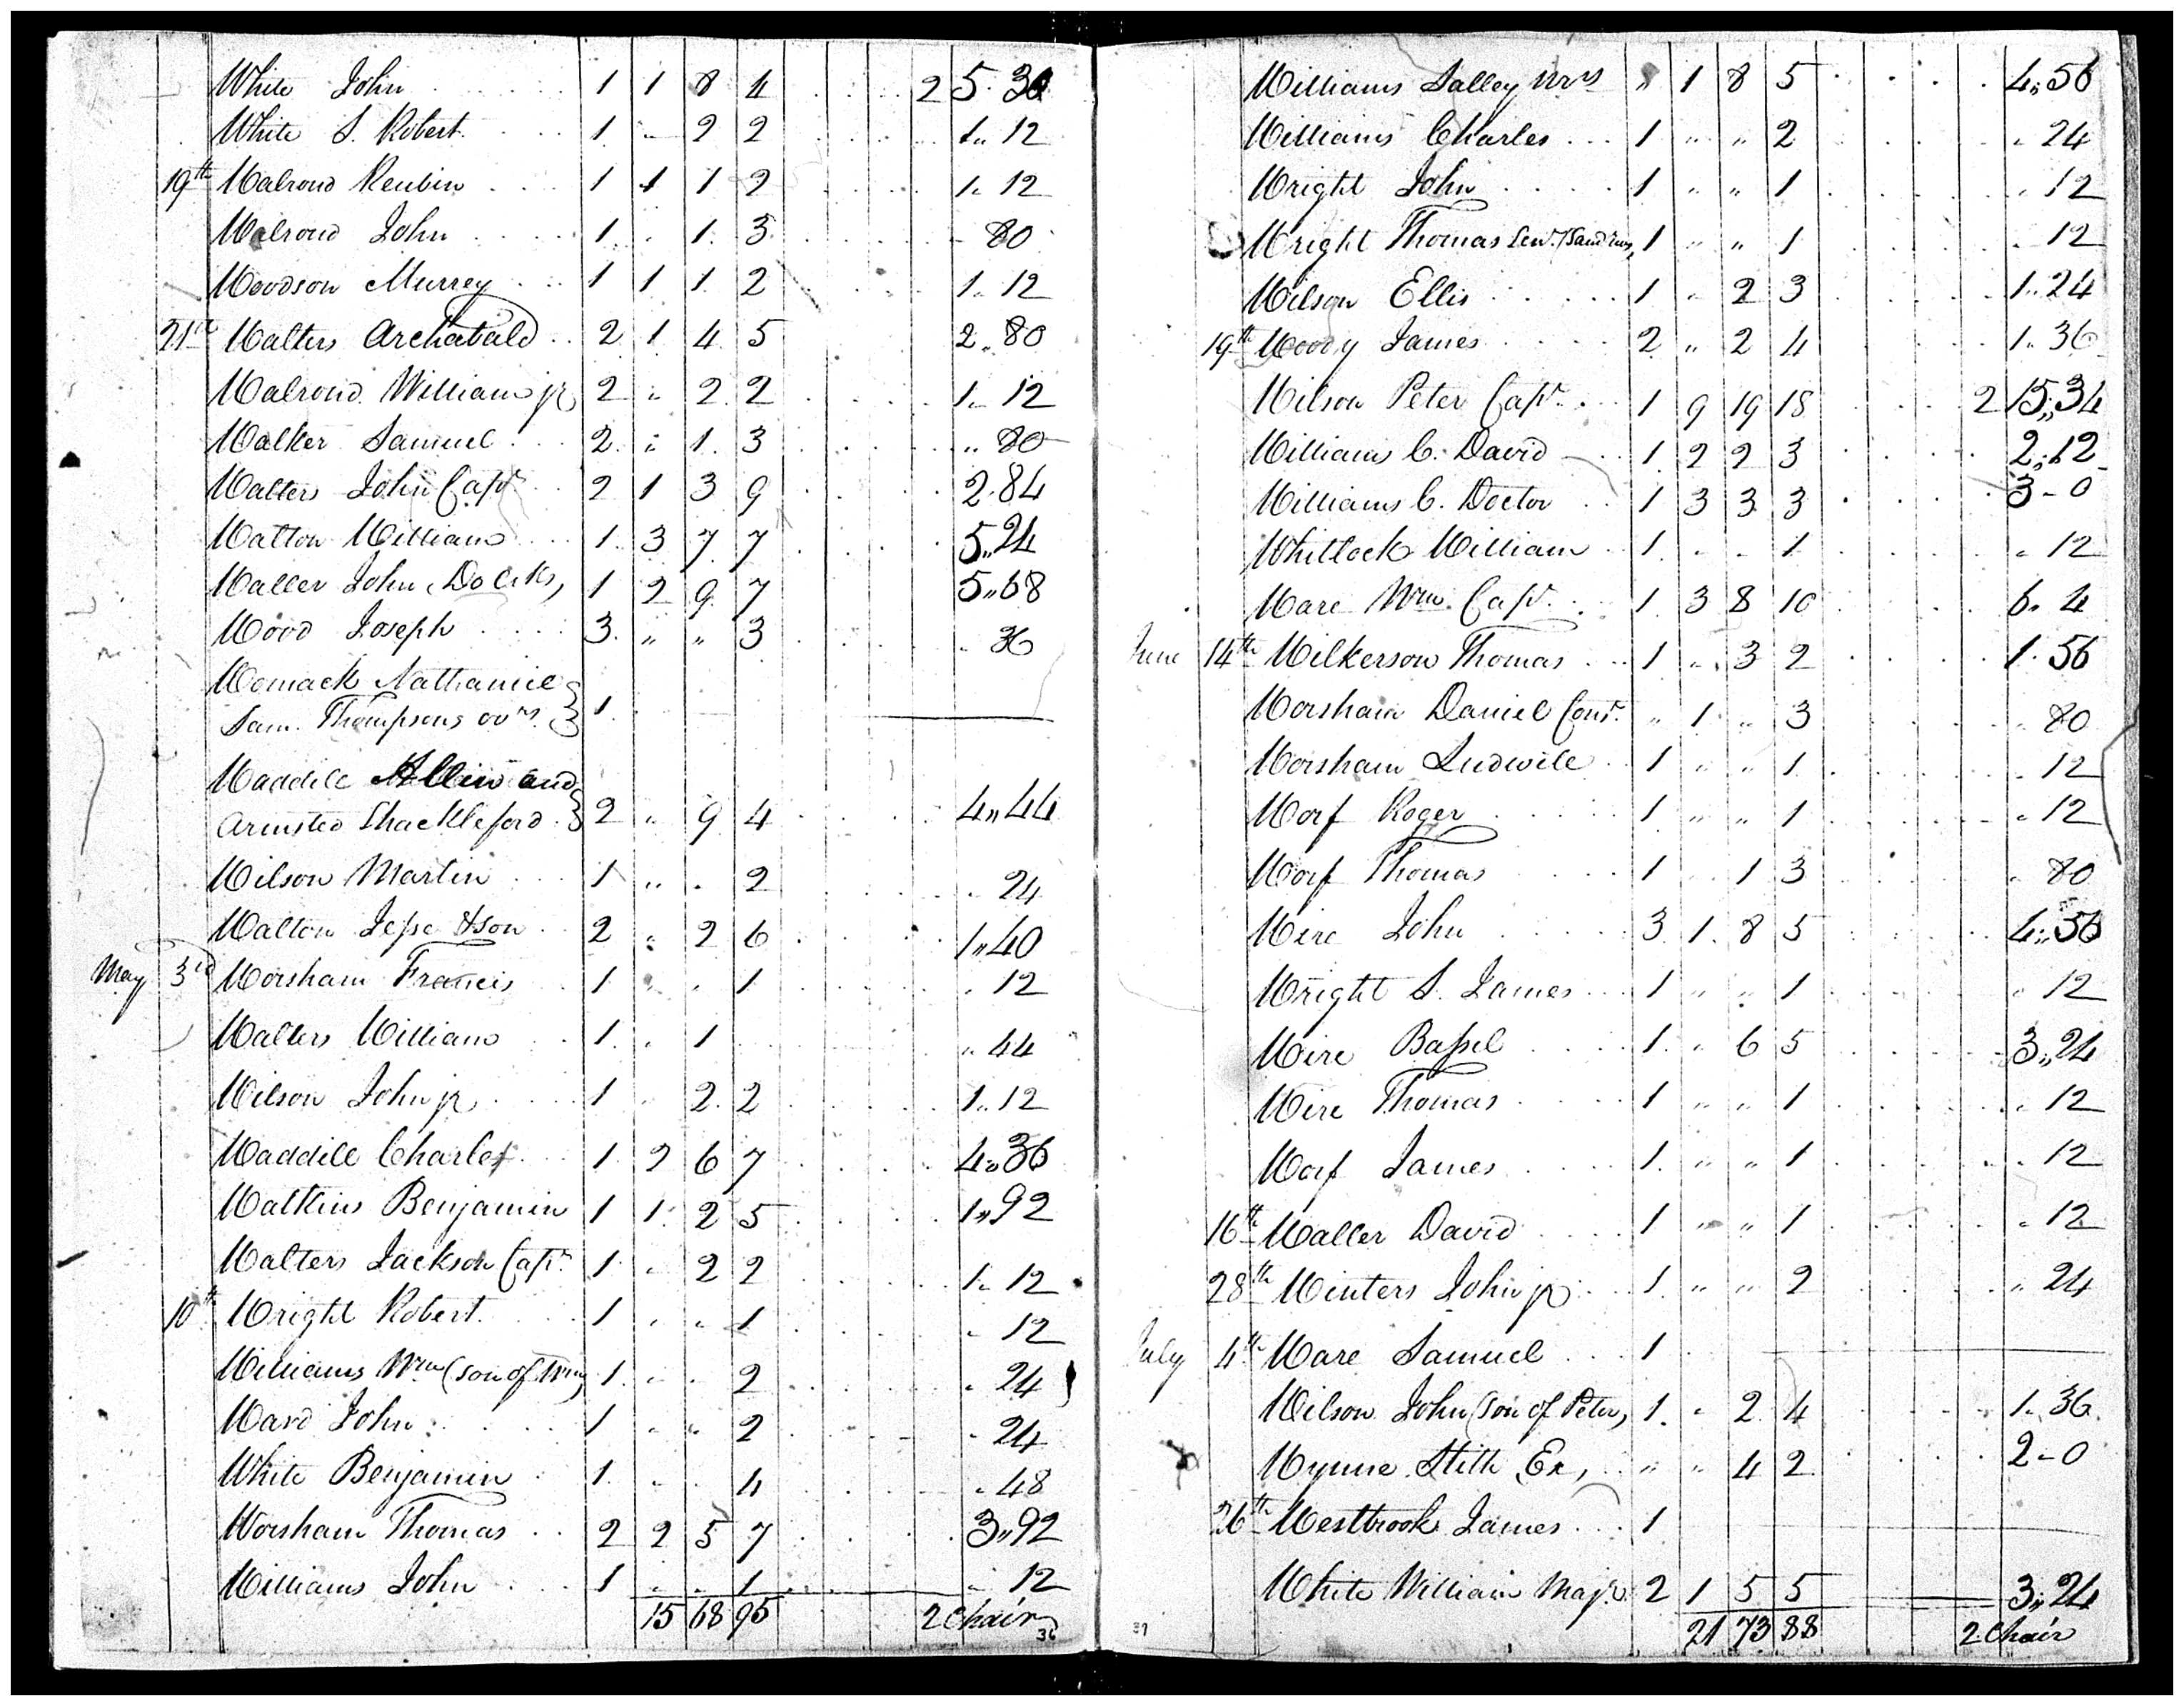 White John 1 1 8 4 2 5.30
White S. Robert. 1 " 2 2 1.. 12
19th Walroud Reubin 1 1 1 2 1. 12
Walroud John 1 . 1. 3 80
Woodson Murrey 1 1 1. 2 1.. 12
21st Walters Archabald 2 1 4 5 2.80
Walroud William jr. 2 " 2.2 1. 12
Walker Samuel 2. " 1. 3 " 80
Walters John Capt. 2 1 3 9 2.84
Walton William 1. 3 7 7 5"24
Waller John, Do Crks, 1 2 9 7 5"68
Wood Joseph 3. " " 3 36
Womack Nathaniel
Sam. Thompsons ovrs. 1.
Waddill Allin and
Armsted Shackleford 2 " 9 4 4"44
Wilson Martin 1 " . 2 24
Walton Jesse & son 2 " 2 6 1"40
May 3rd Worsham Francis 1 " . 1 12
Walters William 1. . 1 " 44
Wilson John jr. 1 2. 2 1.. 12
Waddill Charles 1. 2 6 7 4"36
Watkins Benjamin 1 1. 2 5 1"92
Walters Jackson Capt. 1 . 2 2 1. 12
10th Wright Robert. 1 . " 1 12
Williams Wm (son of Wm) 1. " . 2 24
Ward John 1 " " 2 24
White Benjamin 1. . . 4 48
Worsham Thomas 2 2 5 7 3"92
Williams John 1 . . 1 12
15 68 95 2 Chair
36
Williams Salley Mrs " 1 8 5 4"56
Williams Charles 1 " " 2 24
Wright John 1 " " 1 12
Wright Thomas Senr. (Sandriver, 1 " " 1 12
Wilson Ellis 1 " 2 3 1.. 24
19th Woody James 2 " 2 4 1.. 36
Wilson Peter Capt. 1 9 19 18 2 15"34
Williams C. David 1. 2 2 3 2"12
Williams C. Doctor 1 3 3 3 3-0
Whitlock William 1. . . 1 12
Ware Wm. Capt. 1. 3 8 10 6. 4
June 14th Wilkerson Thomas 1 .. 3 2 1.56
Worsham Daniel Const. " 1 " 3 80
Worsham Ludwill 1 " " 1. 12
Worf Roger 1 " " 1 12
Worf Thomas 1 1 3 80
Wire John 3. 1. 8 5 4"56
Wright S. James 1 " " 1 12
Wire Bassel 1. " 6 5 3"24
Wire Thomas 1 " " 1 12
Worf James 1. " " 1 12
16th Waller David 1 " " 1 12
28th Winters John jr. 1. " " 2 " 24
July 4th Ware Samuel 1
Wilson John (son of Peter, 1. " 2. 4 1.. 36
Wynne Stith Ex, " " 4 2 2-0
26th Westbrook James 1
White William Majr. 2 1 5 5 3"24
21 73 88 2 Chair
37